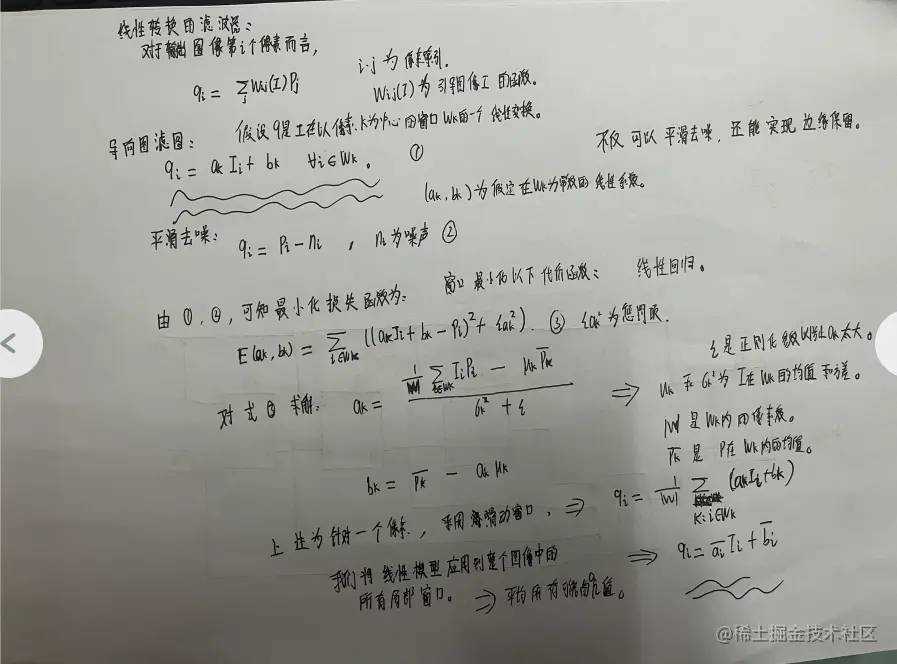 线性转换的滤波器:
对于输出图像第i个像素而言,
qi = ∑j Wij(I)Pj
i.j 为像素索引.
Wij(I) 为引导图像 I 的函数。
导向图滤图: 假设q是I在以像素k为中心的窗口Wk的一个线性变换。
不仅可以平滑去噪,还能实现边缘保留。
qi = ak Ii + bk ∀i∈Wk. ①
(ak, bk) 为假定在Wk为常数的线性系数。
平滑去噪: qi = Pi − ni , ni为噪声 ②
由 ①, ②, 可知最小化损失函数为: 窗口最小化以下代价函数: 线性回归。
E(ak, bk) = ∑i∈Wk ((akIi + bk − Pi)² + εak²). ③ εak²为惩罚项.
ε是正则化参数以防止ak太大。
对式③求解: ak = (1/|W| ∑i∈Wk IiPi − μk P̄k) / (σk² + ε) ⇒ μk 和 σk² 为 I 在 Wk 的均值和方差。
|W| 是 Wk内的像素数。
P̄k 是 P在 Wk内的均值。
bk = P̄k − ak μk
上述为针对一个像素, 采用滑动窗口, ⇒ qi = 1/|W| ∑k:i∈Wk (akIi+bk)
我们将线性模型应用到整个图像中的 ⇒ qi = āi Ii + b̄i
所有局部窗口。 ⇒ 平均所有可能的qi值。
@稀土掘金技术社区